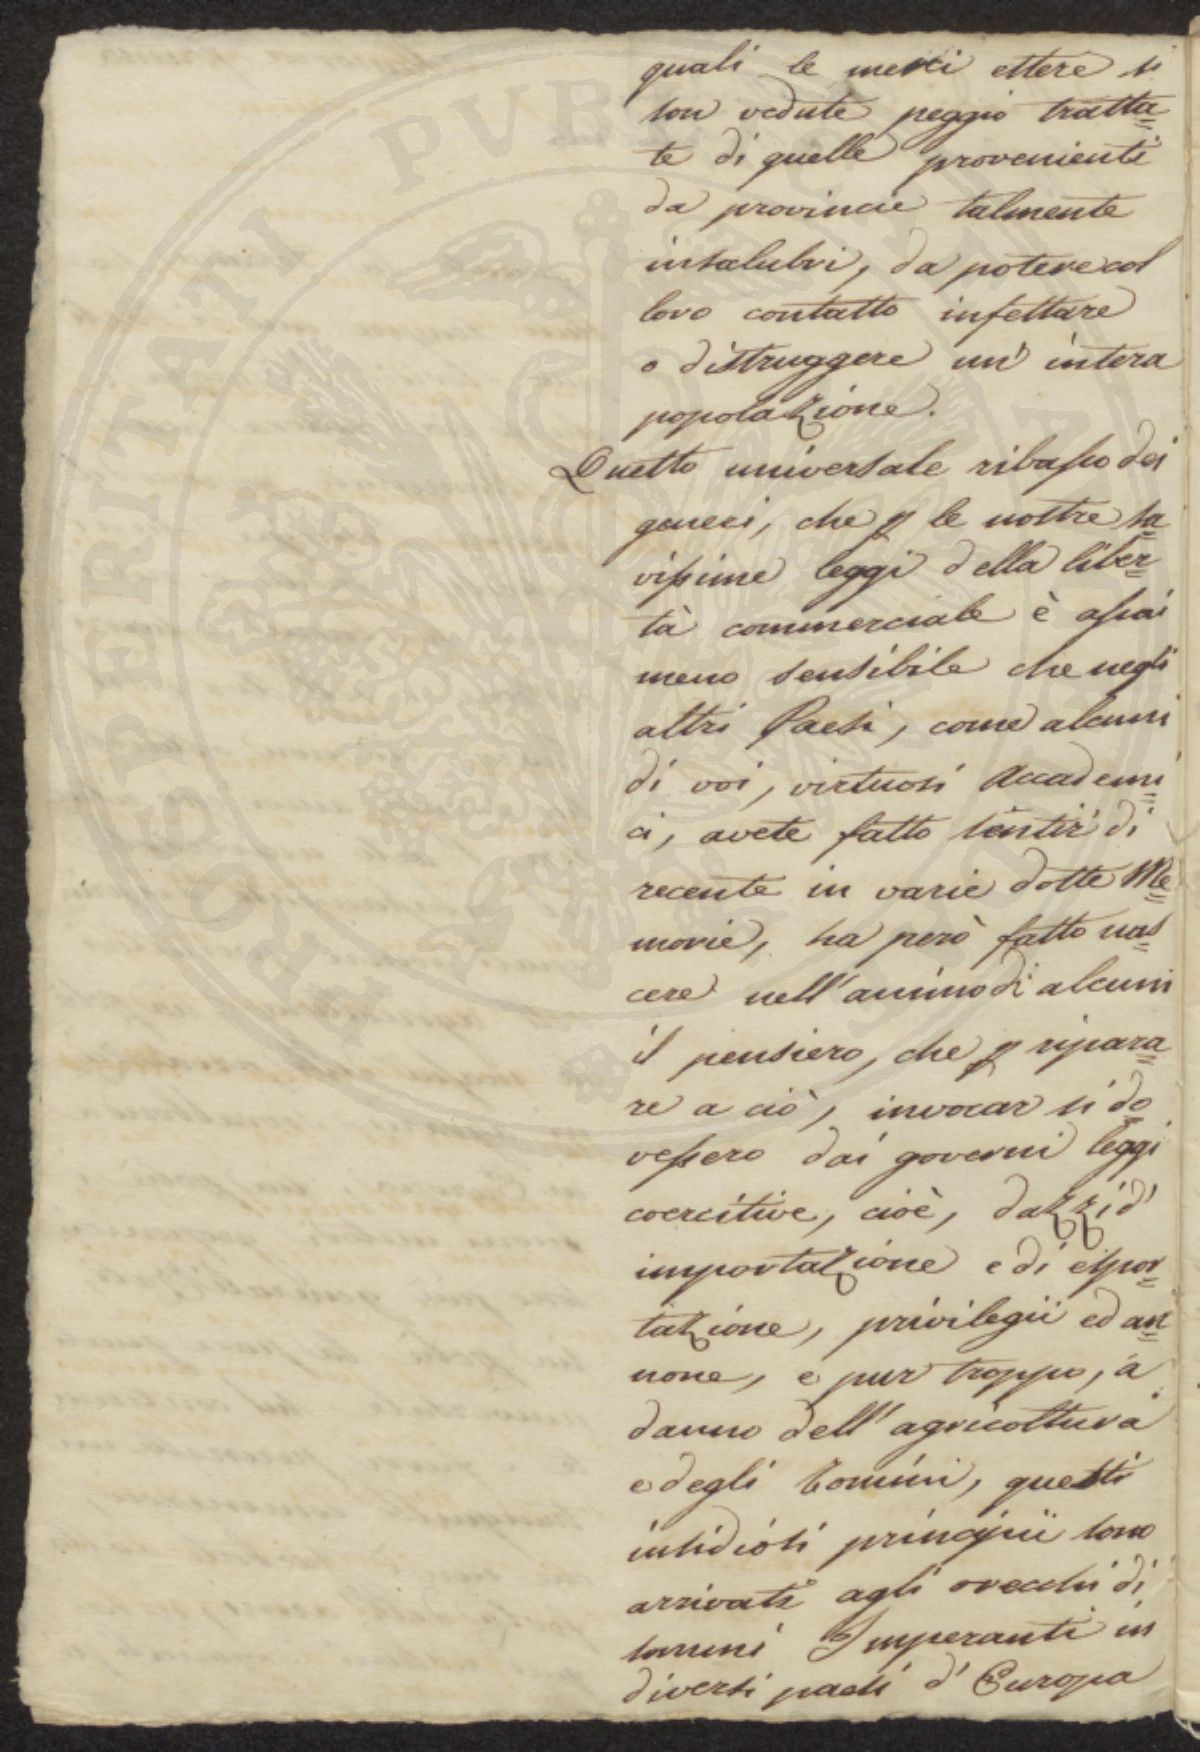 quali le merci estere si
son vedute peggio tratta=
te di quelle provenienti
da provincie talmente
insalubri, da potere col
loro contatto infettare
o distruggere un' intera
popolazione.
Questo universale ribasso dei
generi, che p le nostre sa=
vissime leggi della liber=
tà commerciale è assai
meno sensibile che negli
altri Paesi, come alcuni
di voi, virtuosi Accademi=
ci, avete fatto sentir di
recente in varie dotte Me=
morie, ha però fatto nas=
cere nell'animo di alcuni
il pensiero, che p ripara=
re a ciò, invocar si do=
vessero dai governi leggi
coercitive, cioè, dazzi d'
importazione e di espor=
tazione, privilegii ed an=
none, e pur troppo, a
danno dell'agricoltura
e degli Uomini, questi
insidiosi principii sono
arrivati agli orecchi di
sommi Imperanti in
diversi paesi d'Europa
PUBLICAE
PROSPERITATI